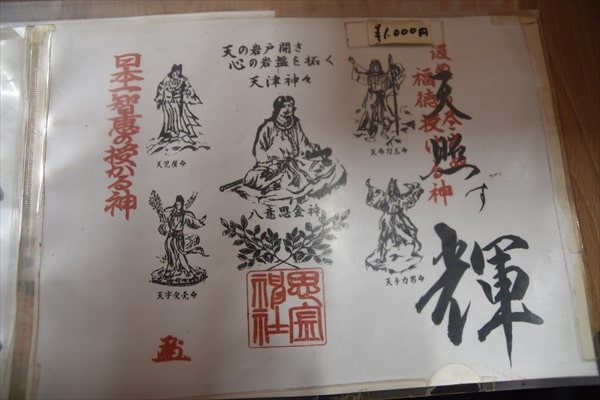 ¥1,000円
天の岩戸開き
心の岩盤を拓く
天津神々
福徳授ける神
天照す
輝
日本一智恵の授かる神
天児屋命
天布刀玉命
八意思金神
天宇受売命
天手力男命
思金神社